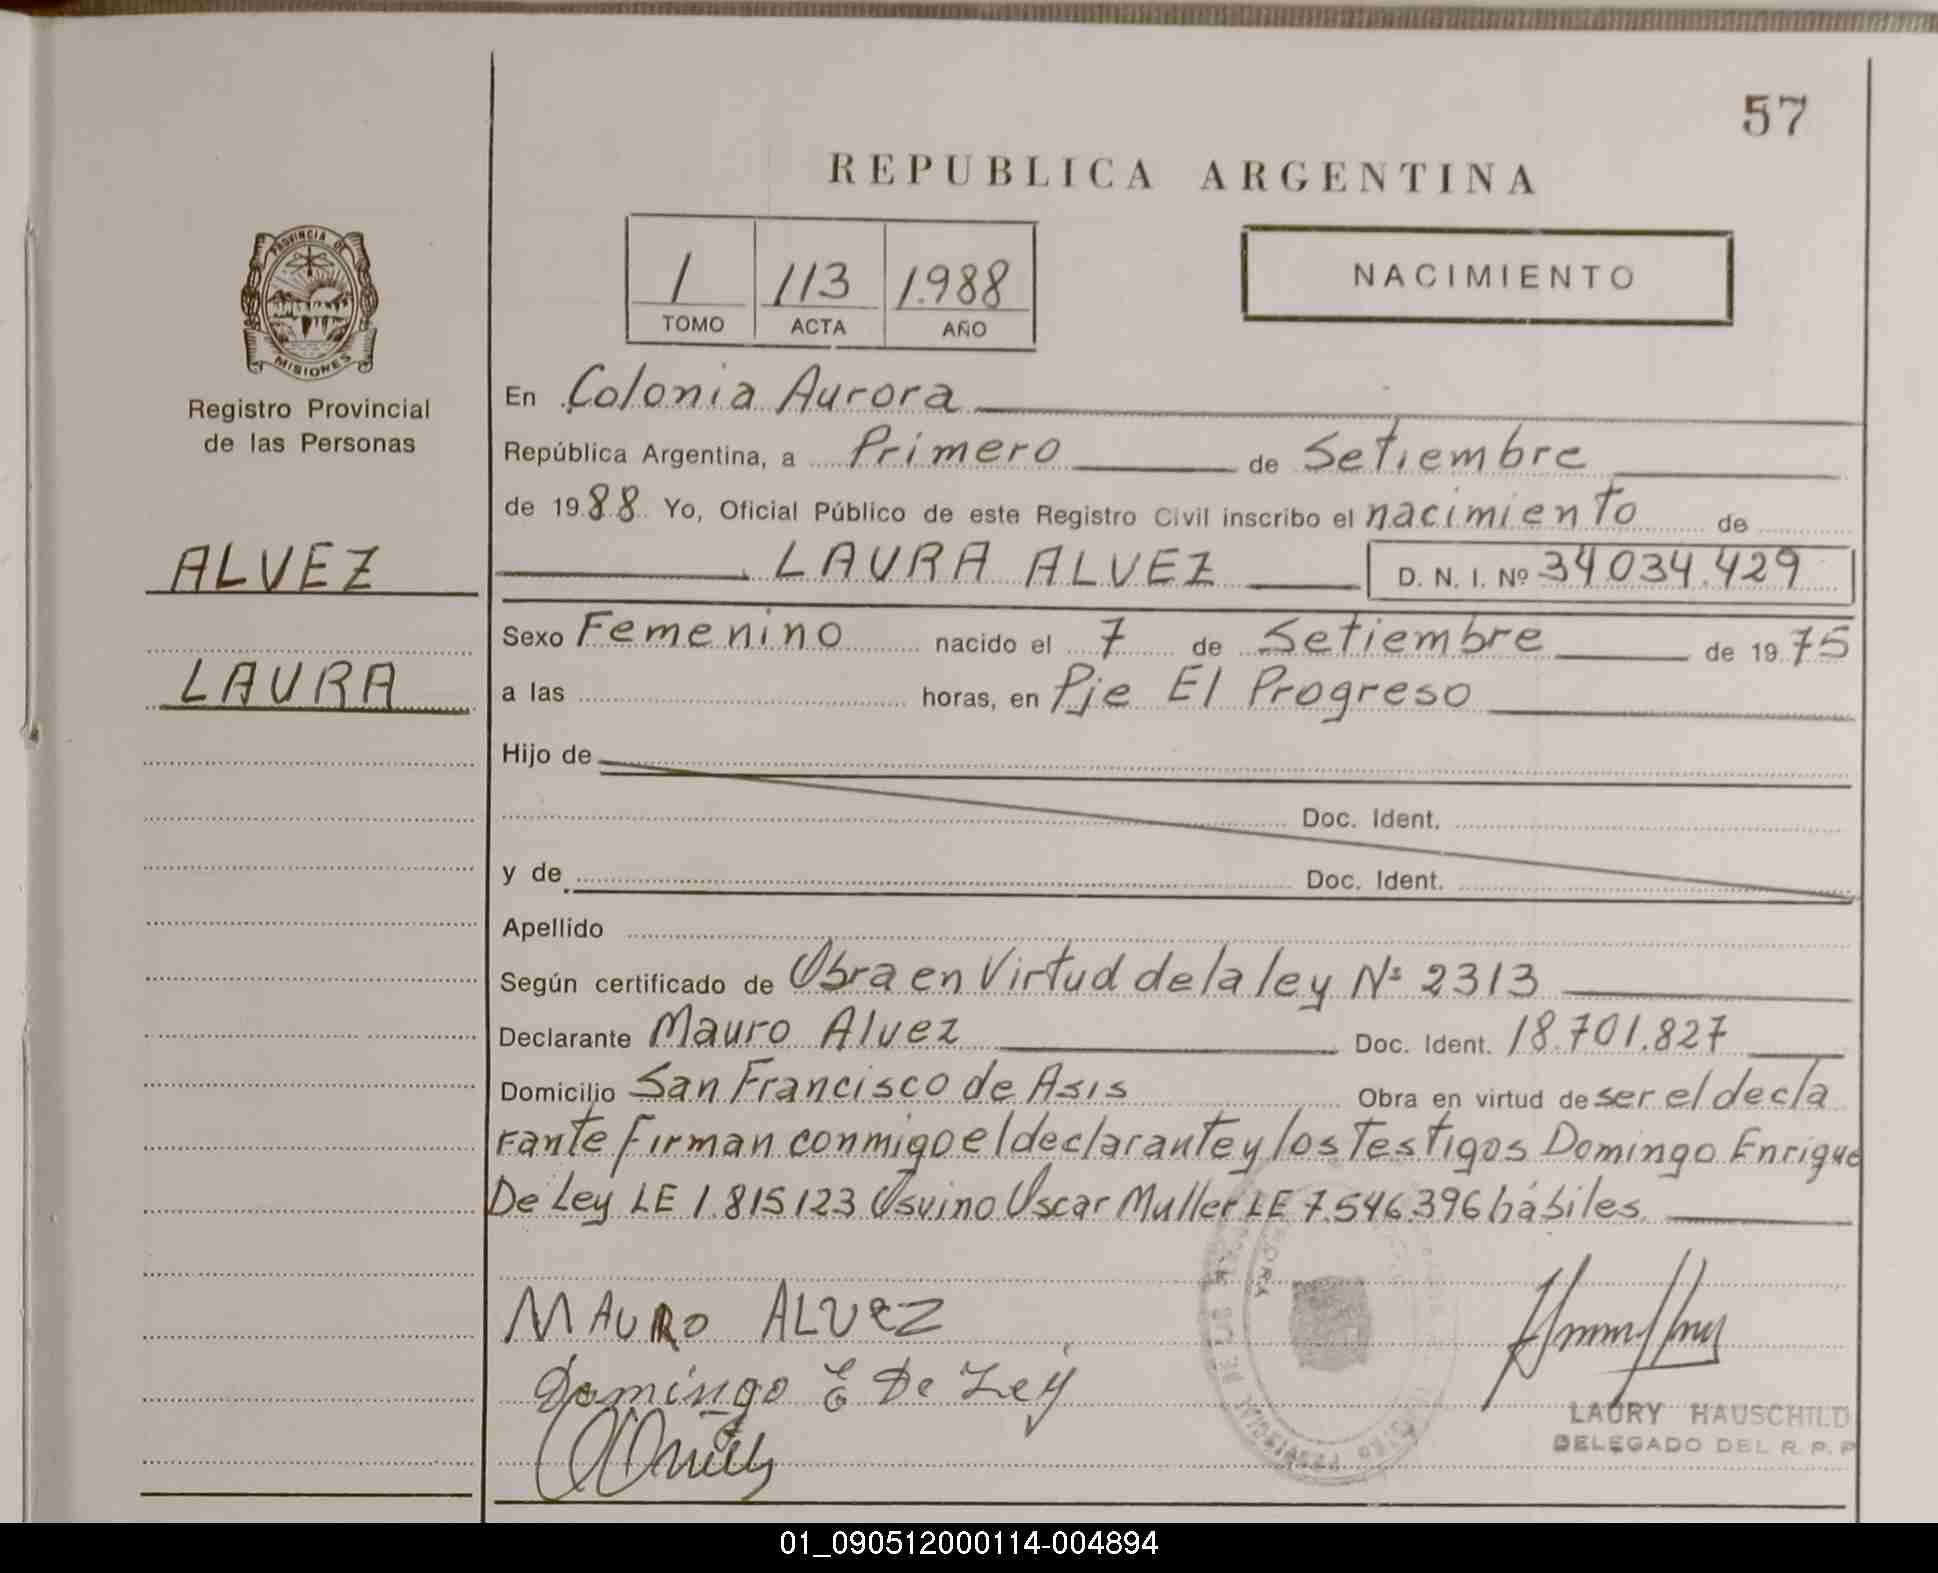 57
REPUBLICA ARGENTINA
PROVINCIA DE
MISIONES
Registro Provincial
de las Personas
1 113 1.988
TOMO ACTA AÑO
NACIMIENTO
En Colonia Aurora
República Argentina, a Primero de Setiembre
de 1988 Yo, Oficial Público de este Registro Civil inscribo el nacimiento de
ALVEZ
LAURA ALVEZ D. N. I. Nº 34034.429
Sexo Femenino nacido el 7 de Setiembre de 1975
LAURA
a las horas, en Pje El Progreso
Hijo de
Doc. Ident.
y de Doc. Ident.
Apellido
Según certificado de Obra en Virtud de la ley Nº 2313
Declarante Mauro Alvez Doc. Ident. 18.701.827
Domicilio San Francisco de Asis Obra en virtud de ser el decla
rante Firman conmigo el declarante y los Testigos Domingo Enrique
De Ley LE 1.815123 Osvino Oscar Muller LE 7.546.396 hábiles.
MAURO ALVEZ
Domingo E De Ley
LAURY HAUSCHILD
DELEGADO DEL R. P. P
01_090512000114-004894